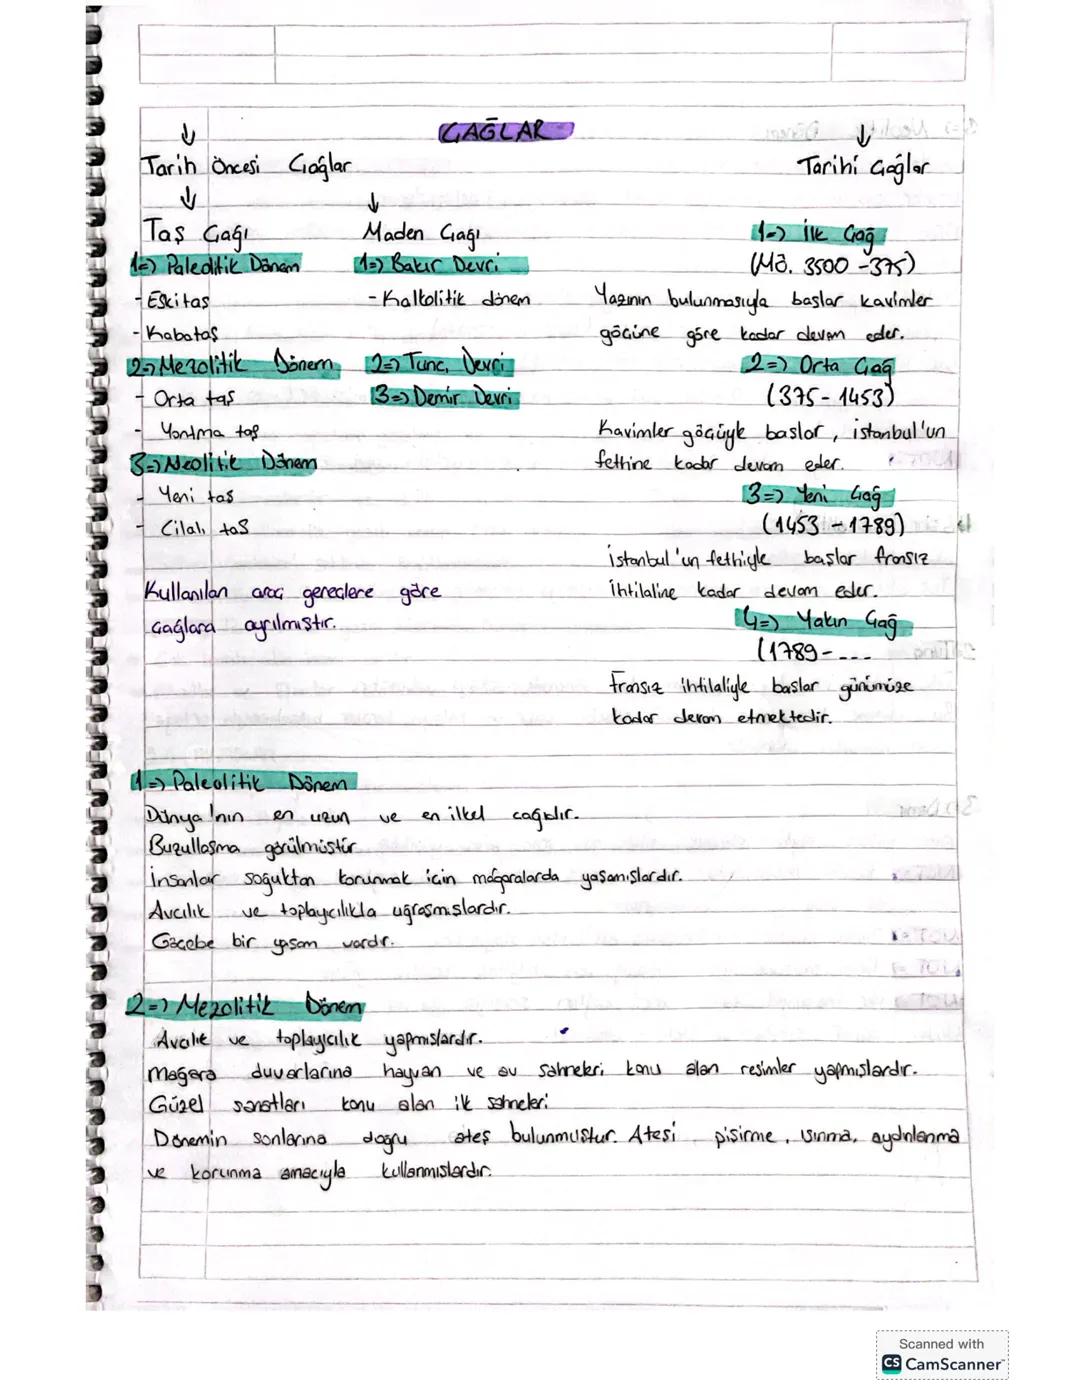 ÇAĞLAR
Tarih Öncesi Çağlar
Tarihi Çağlar
Taş Çağı
Maden Çağı
1=) Paleolitik Dönem
- Eski taş
- Kaba taş
2=) Mezolitik Dönem
- Orta taş
- Yontma taş
3=) Neolitik Dönem
- Yeni taş
- Cilalı taş
1=) Bakır Devri
- Kalkolitik dönem
2=) Tunç Devri
3=) Demir Devri
Kullanılan araç gereçlere göre
çağlara ayrılmıştır.
1=) İlk Çağ
(Mö. 3500 - 375)
Yazının bulunmasıyla başlar kavimler
göçüne göre kadar devam eder.
2=) Orta Çağ
(375 - 1453)
Kavimler göçüyle başlar, istanbul'un
fethine kadar devam eder.
3=) Yeni Çağ
(1453 - 1789)
istanbul'un fethiyle başlar fransız
ihtilaline kadar devam eder.
4=) Yakın Çağ
(1789 - ...
Fransız ihtilaliyle başlar günümüze
kadar devam etmektedir.
1=) Paleolitik Dönem
Dünya'nın en uzun ve en ilkel çağıdır.
Buzullaşma görülmüştür
İnsanlar soğuktan korunmak için mağaralarda yaşamışlardır.
Avcılık ve toplayıcılıkla uğraşmışlardır.
Göçebe bir yaşam vardır.
2=) Mezolitik Dönem
Avcılık ve toplayıcılık yapmışlardır.
Mağara duvarlarına hayvan ve av sahneleri konu alan resimler yapmışlardır.
Güzel sanatları konu alan ilk sahneleri
Dönemin sonlarına doğru ateş bulunmuştur. Ateşi pişirme, ısınma, aydınlanma
ve korunma amacıyla kullanmışlardır.
Scanned with
CS CamScanner